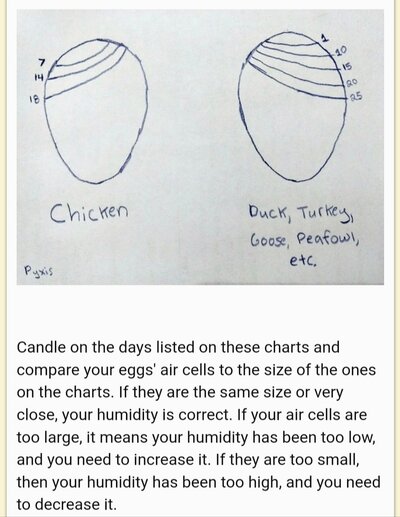 7
14
18
1
10
15
20
25
Chicken
Duck, Turkey,
Goose, Peafowl,
etc.
Pyxis
Candle on the days listed on these charts and
compare your eggs' air cells to the size of the ones
on the charts. If they are the same size or very
close, your humidity is correct. If your air cells are
too large, it means your humidity has been too low,
and you need to increase it. If they are too small,
then your humidity has been too high, and you need
to decrease it.